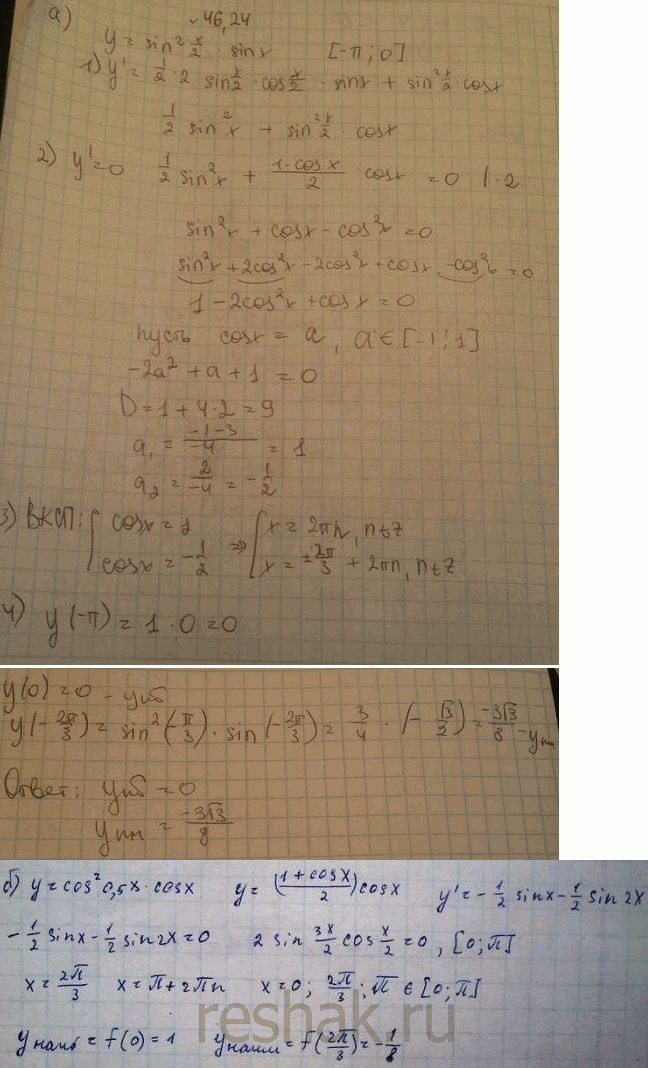 а) 46,24
y = sin² x/2 · sinx [-π; 0]
1) y' = 1/2 · 2 sin x/2 · cos x/2 · sinx + sin² x/2 · cosx
1/2 sin²x + sin² x/2 · cosx
2) y' = 0 1/2 sin²x + (1-cosx)/2 · cosx = 0 | · 2
sin²x + cosx - cos²x = 0
sin²x + 2cos²x - 2cos²x + cosx - cos²x = 0
1 - 2cos²x + cosx = 0
Пусть cosx = a, a ∈ [-1; 1]
-2a² + a + 1 = 0
D = 1 + 4·2 = 9
a₁ = (-1-3)/-4 = 1
a₂ = 2/-4 = -1/2
3) ВКСП: { cosx = 1 cosx = -1/2 => [ x = 2πn, n∈z x = ±2π/3 + 2πn, n∈Z
4) y(-π) = 1 · 0 = 0
y(0) = 0 - yнб
y(-2π/3) = sin²(-π/3) · sin(-2π/3) = 3/4 · (-√3/2) = -3√3/8 - yнм
Ответ: yнб = 0
yнм = -3√3/8
б) y = cos² 0,5x · cosx y = ((1+cosx)/2) cosx y' = -1/2 sinx - 1/2 sin 2x
-1/2 sinx - 1/2 sin 2x = 0 2 sin 3x/2 cos x/2 = 0, [0; π]
x = 2π/3 x = π + 2πn x = 0; 2π/3; π ∈ [0; π]
yнаиб = f(0) = 1 yнаим = f(2π/3) = -1/8
reshak.ru